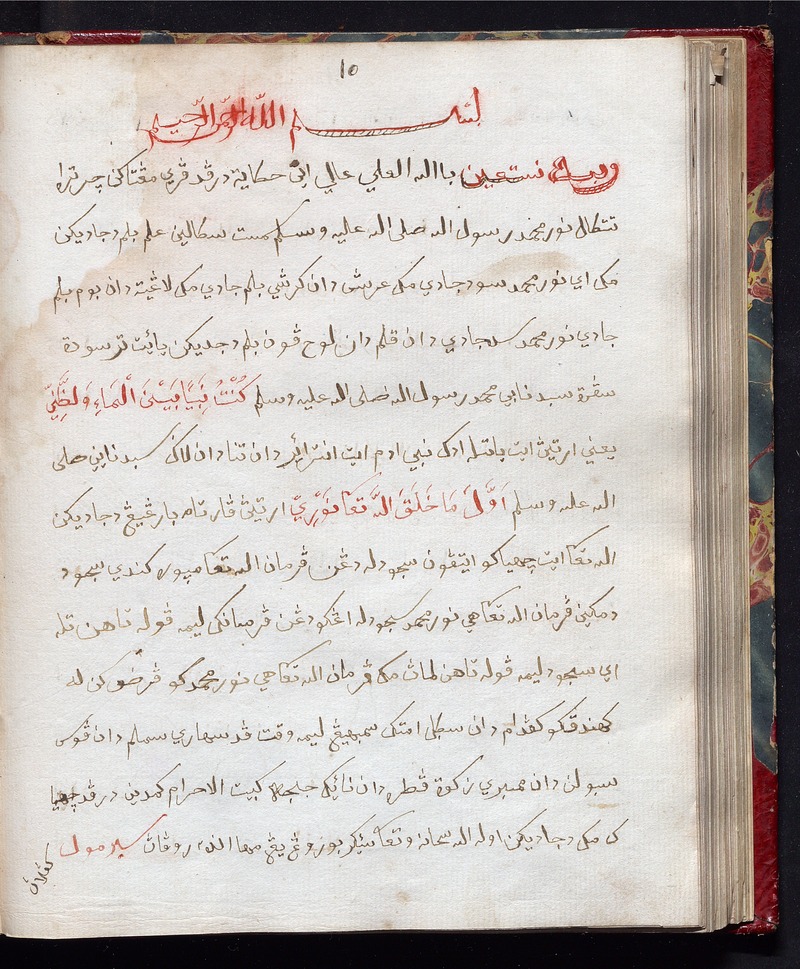 10
بسم الله الرحمن الرحيم
وبه نستعين بالله العلي عالي اين حكاية درڤد ڤري مڠتاكن چرترا
تتكال نور محمد رسول الله صلى الله عليه وسلم سكالين علم بلم دجاديكن
مك اي نور محمد سود جادي مك عرش دان كرسي بلم جادي مك لاڠيت دان بوم بلم
جادي نور محمد سد جادي دان قلم دان لوح ڤون بلم دجديكن يائيت ترسوده
سڤرة سبد نابي محمد رسول الله صلى الله عليه وسلم كُنْتُ نَبِيًّا بَيْنَ الْمَاءِ وَلطِّيْنِ
يعني ارتيڽ ايت باتله ادك نبي ادم ايت انتراير دان تنا دان لاڬ سبد نابي صلى
الله عليه وسلم اَوَّلَ مَا خَلَقَ اللهُ تعَا نُوْرِيْ ارتيڽ ڤرتام بارڠيڠ دجاديكن
الله تعا ايت چهياكو ايتڤون سجودله دڠن ڤرمان الله تعا ميوره كندي سجود
دمكين ڤرمان الله تعا هي نور محمد سجودله اڠكو دڠن ڤرمانكو ليم ڤوله تاهن تله
اي سجود ليم ڤوله تاهن لماڽ مك ڤرمان الله تعا هي نور محمد كو ڤرضوكن له
كهندقكو كڤدام دان سڬل امتك سمبهيڠ ليم وقت ڤد سهاري سملم دان ڤوس
سبولن دان ممبري زكوة ڤطره دان نائيك حج كبيت الاحرام كمدين درڤد چهيا
ك مك دجاديكن اوله الله سبحانه وتعا سيكر بوروڠ يڠ مها اندة روڤاڽ سيرمول
كڤلاڽ